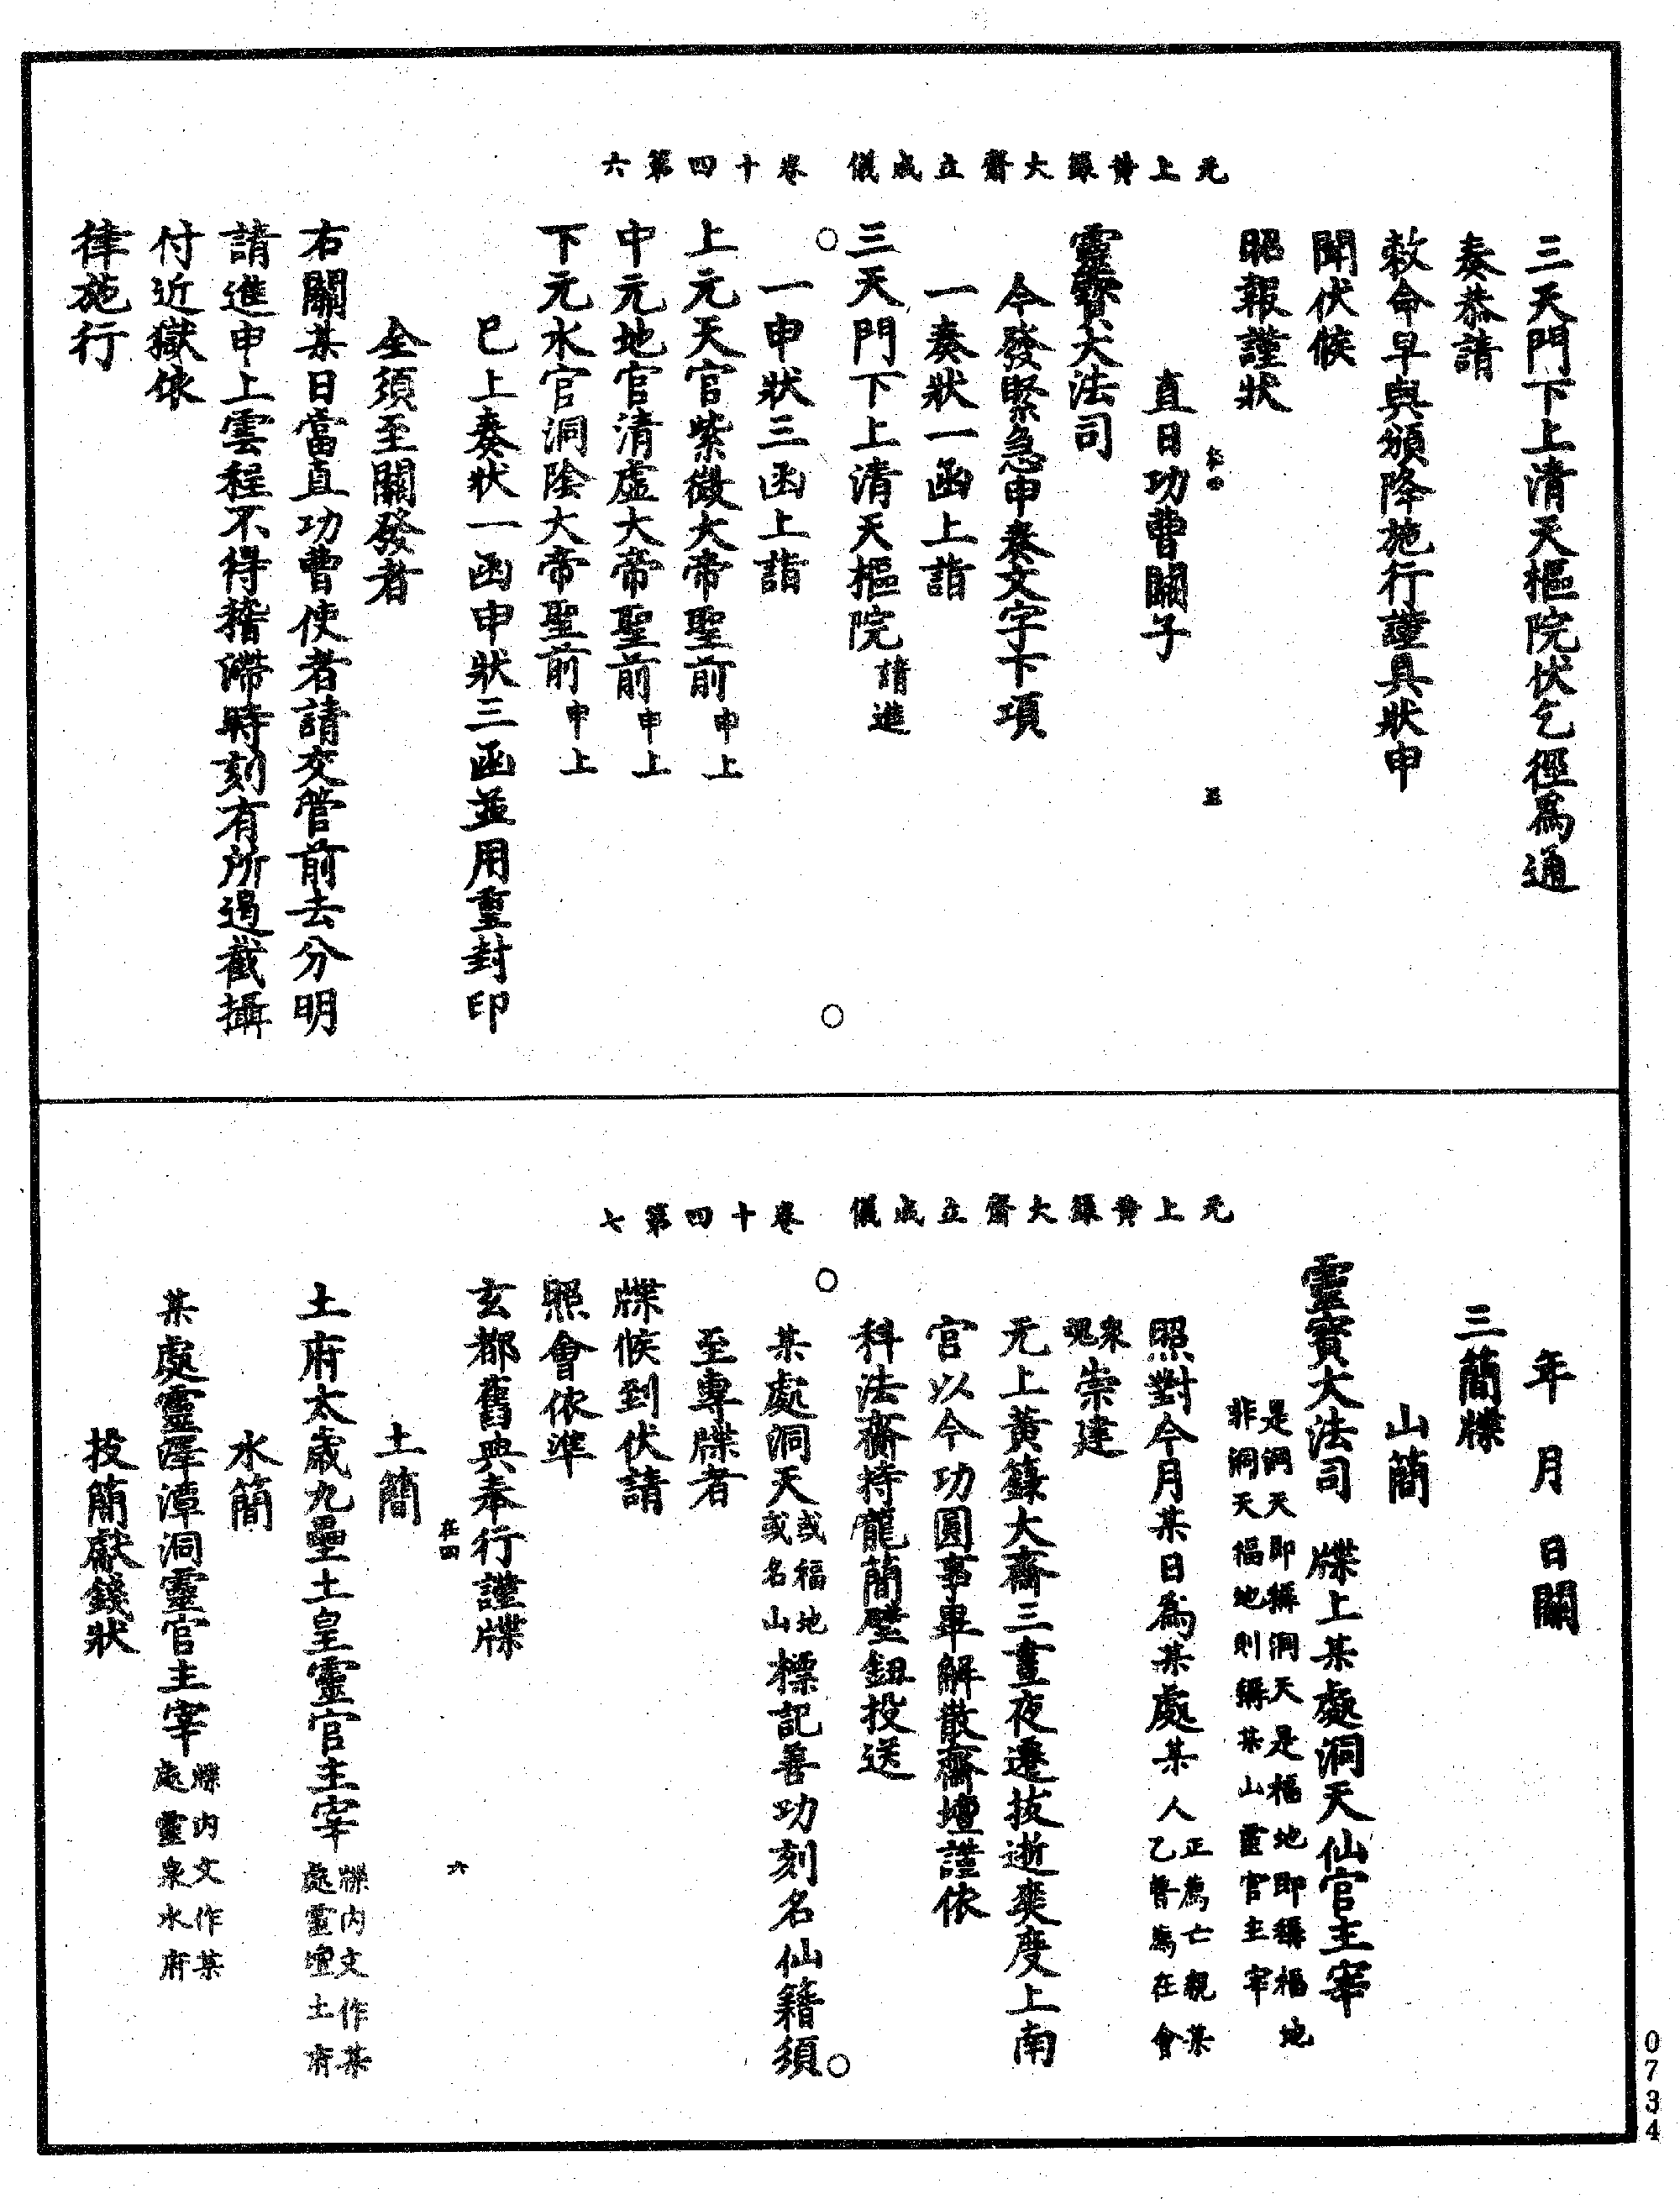 元上黃籙大齋立成儀　卷十四第六
三天門下上清天樞院伏乞徑爲通
奏恭請
敕命早與頒降施行謹具狀申
聞伏候
昭報謹狀
直日功曹關子
靈寶大法司
今發緊急申奏文字下項
一奏狀一函上詣
三天門下上清天樞院請進
一申狀三函上詣
上元天官紫微大帝聖前申上
中元地官清虛大帝聖前申上
下元水官洞陰大帝聖前申上
巳上奏狀一函申狀三函並用重封印
全須至關發者
右關某日當直功曹使者請交管前去分明
請進申上雲程不得稽滯時刻有所遏截攝
付近獄依
律施行
元上黃籙大齋立成儀　卷十四第七
年　月　日關
三簡牒
山簡
靈寶大法司　牒上某處洞天仙官主宰
是洞天即稱洞天是福地即稱福地
非洞天福地則稱某山靈官主宰
照對今月某日爲某處某人正薦亡親某
乙普薦在會
衆
魂崇建
无上黃籙大齋三晝夜遷拔逝爽度上南
宮以今功圓事畢解散齋壇謹依
科法齋持龍簡璧鈕投送
某處洞天或福地
或名山標記善功刻名仙籍須
至專牒者
牒候到伏請
照會依準
玄都舊典奉行謹牒
在四　六
土簡
土府太歲九壘土皇靈官主宰牒內文作某
處靈壇土府
水簡
某處靈澤潭洞靈官主宰牒內文作某
處靈泉水府
投簡獻錢狀
0734